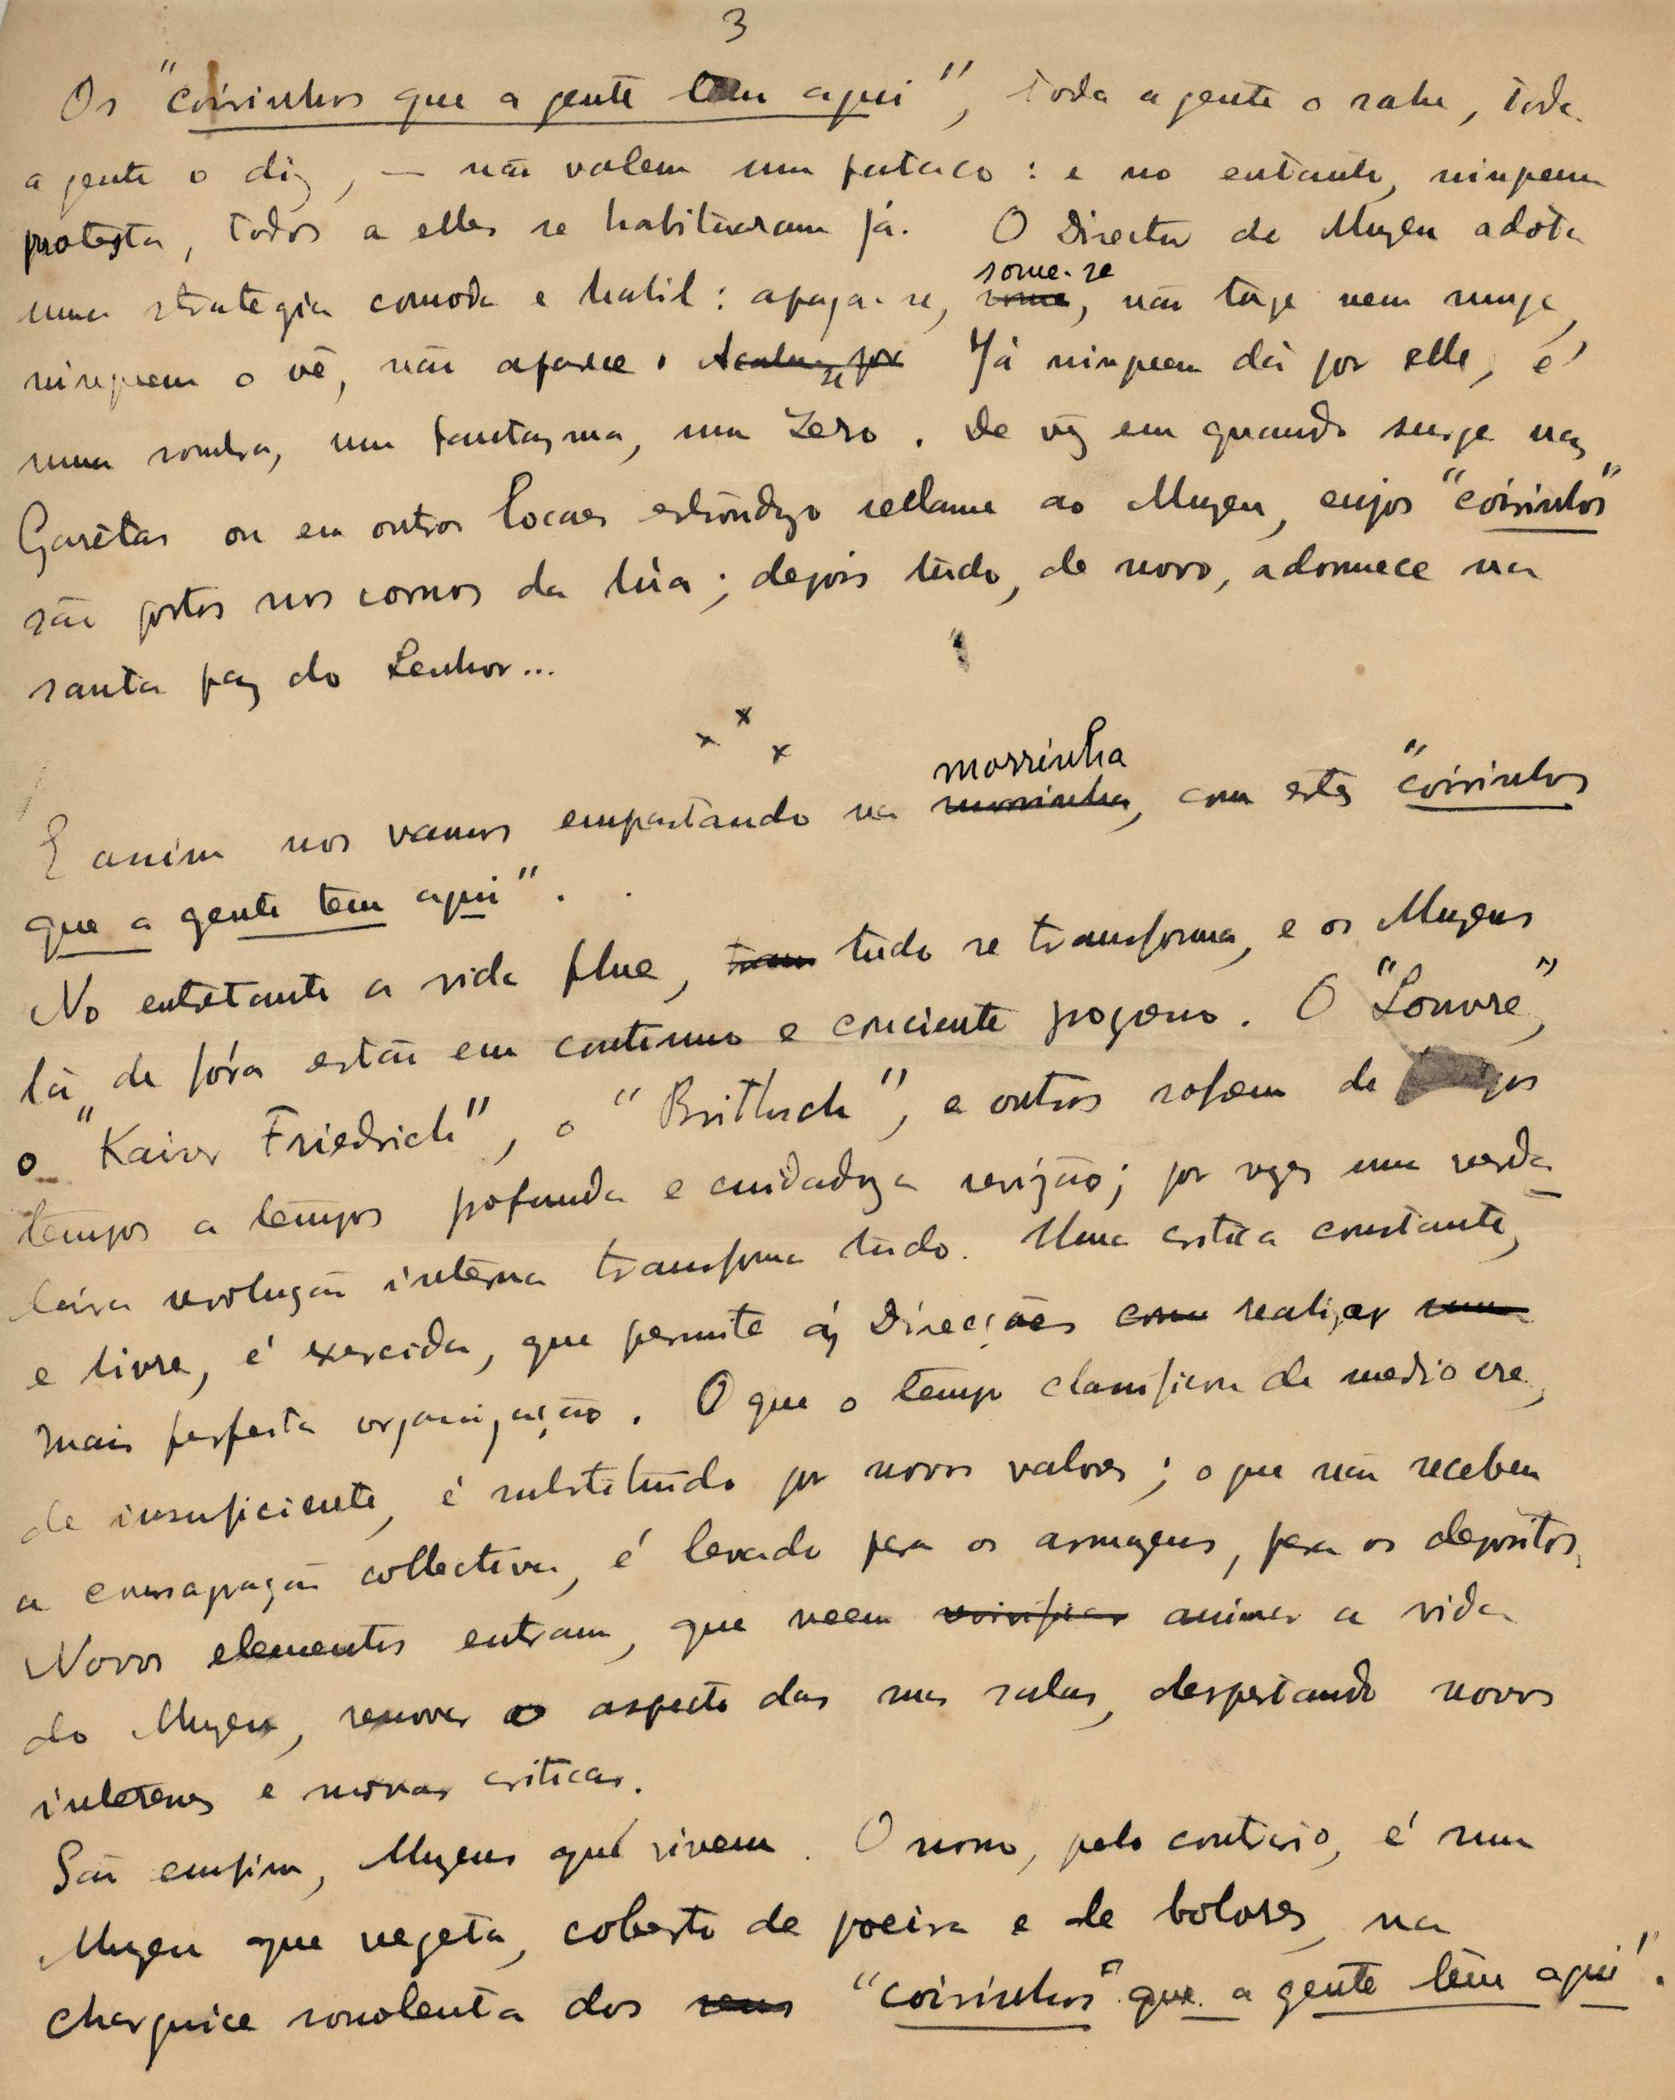 3
Os "coisinhos que a gente tem aqui", toda a gente o sabe, toda
a gente o diz, — não valem um pataco: e no entanto, ninguem
protesta, todos a elles se habituaram já. O Director do Muzeu adota
uma strategia comoda e habil: apaga-se, some-se, não tuge nem muge,
ninguem o vê, não aparece. Já ninguem dá por elle, é
uma sombra, um fantasma, um Zero. De vez em quando surge nas
Gazêtas ou em outros locaes estrondozo reclame ao Muzeu, cujos "coisinhos"
são postos nos cornos da lúa; depois tudo, de novo, adormece na
santa paz do Senhor...
x x x
E assim nos vamos empastando na morrinha, com estes "coisinhos
que a gente tem aqui".
No entretanto a vida flue, tudo se transforma, e os Muzeus
lá de fóra estão em continuo e conciente progresso. O "Louvre",
o "Kaiser Friedrich", o "Brittisch", e outros sofrem de
tempos a tempos profunda e cuidadoza revizão; por vezes uma verda-
deira revolução interna transforma tudo. Uma critica constante,
e livre, é exercida, que permite ás Direcções realizar
mais perfeita organização. O que o tempo classificou de mediocre,
de insuficiente, é substituido por novos valores; o que não recebeu
a consagração collectiva, é levado para os armazens, para os depositos.
Novos elementos entram, que veem animar a vida
do Muzeu, renovar o aspecto das suas salas, despertando novos
interesses e novas criticas.
São emfim, Muzeus que vivem. O nosso, pelo contrario, é um
Muzeu que vegeta, coberto de poeira e de bolores, na
charquice sonolenta dos "coisinhos" que a gente tem aqui".